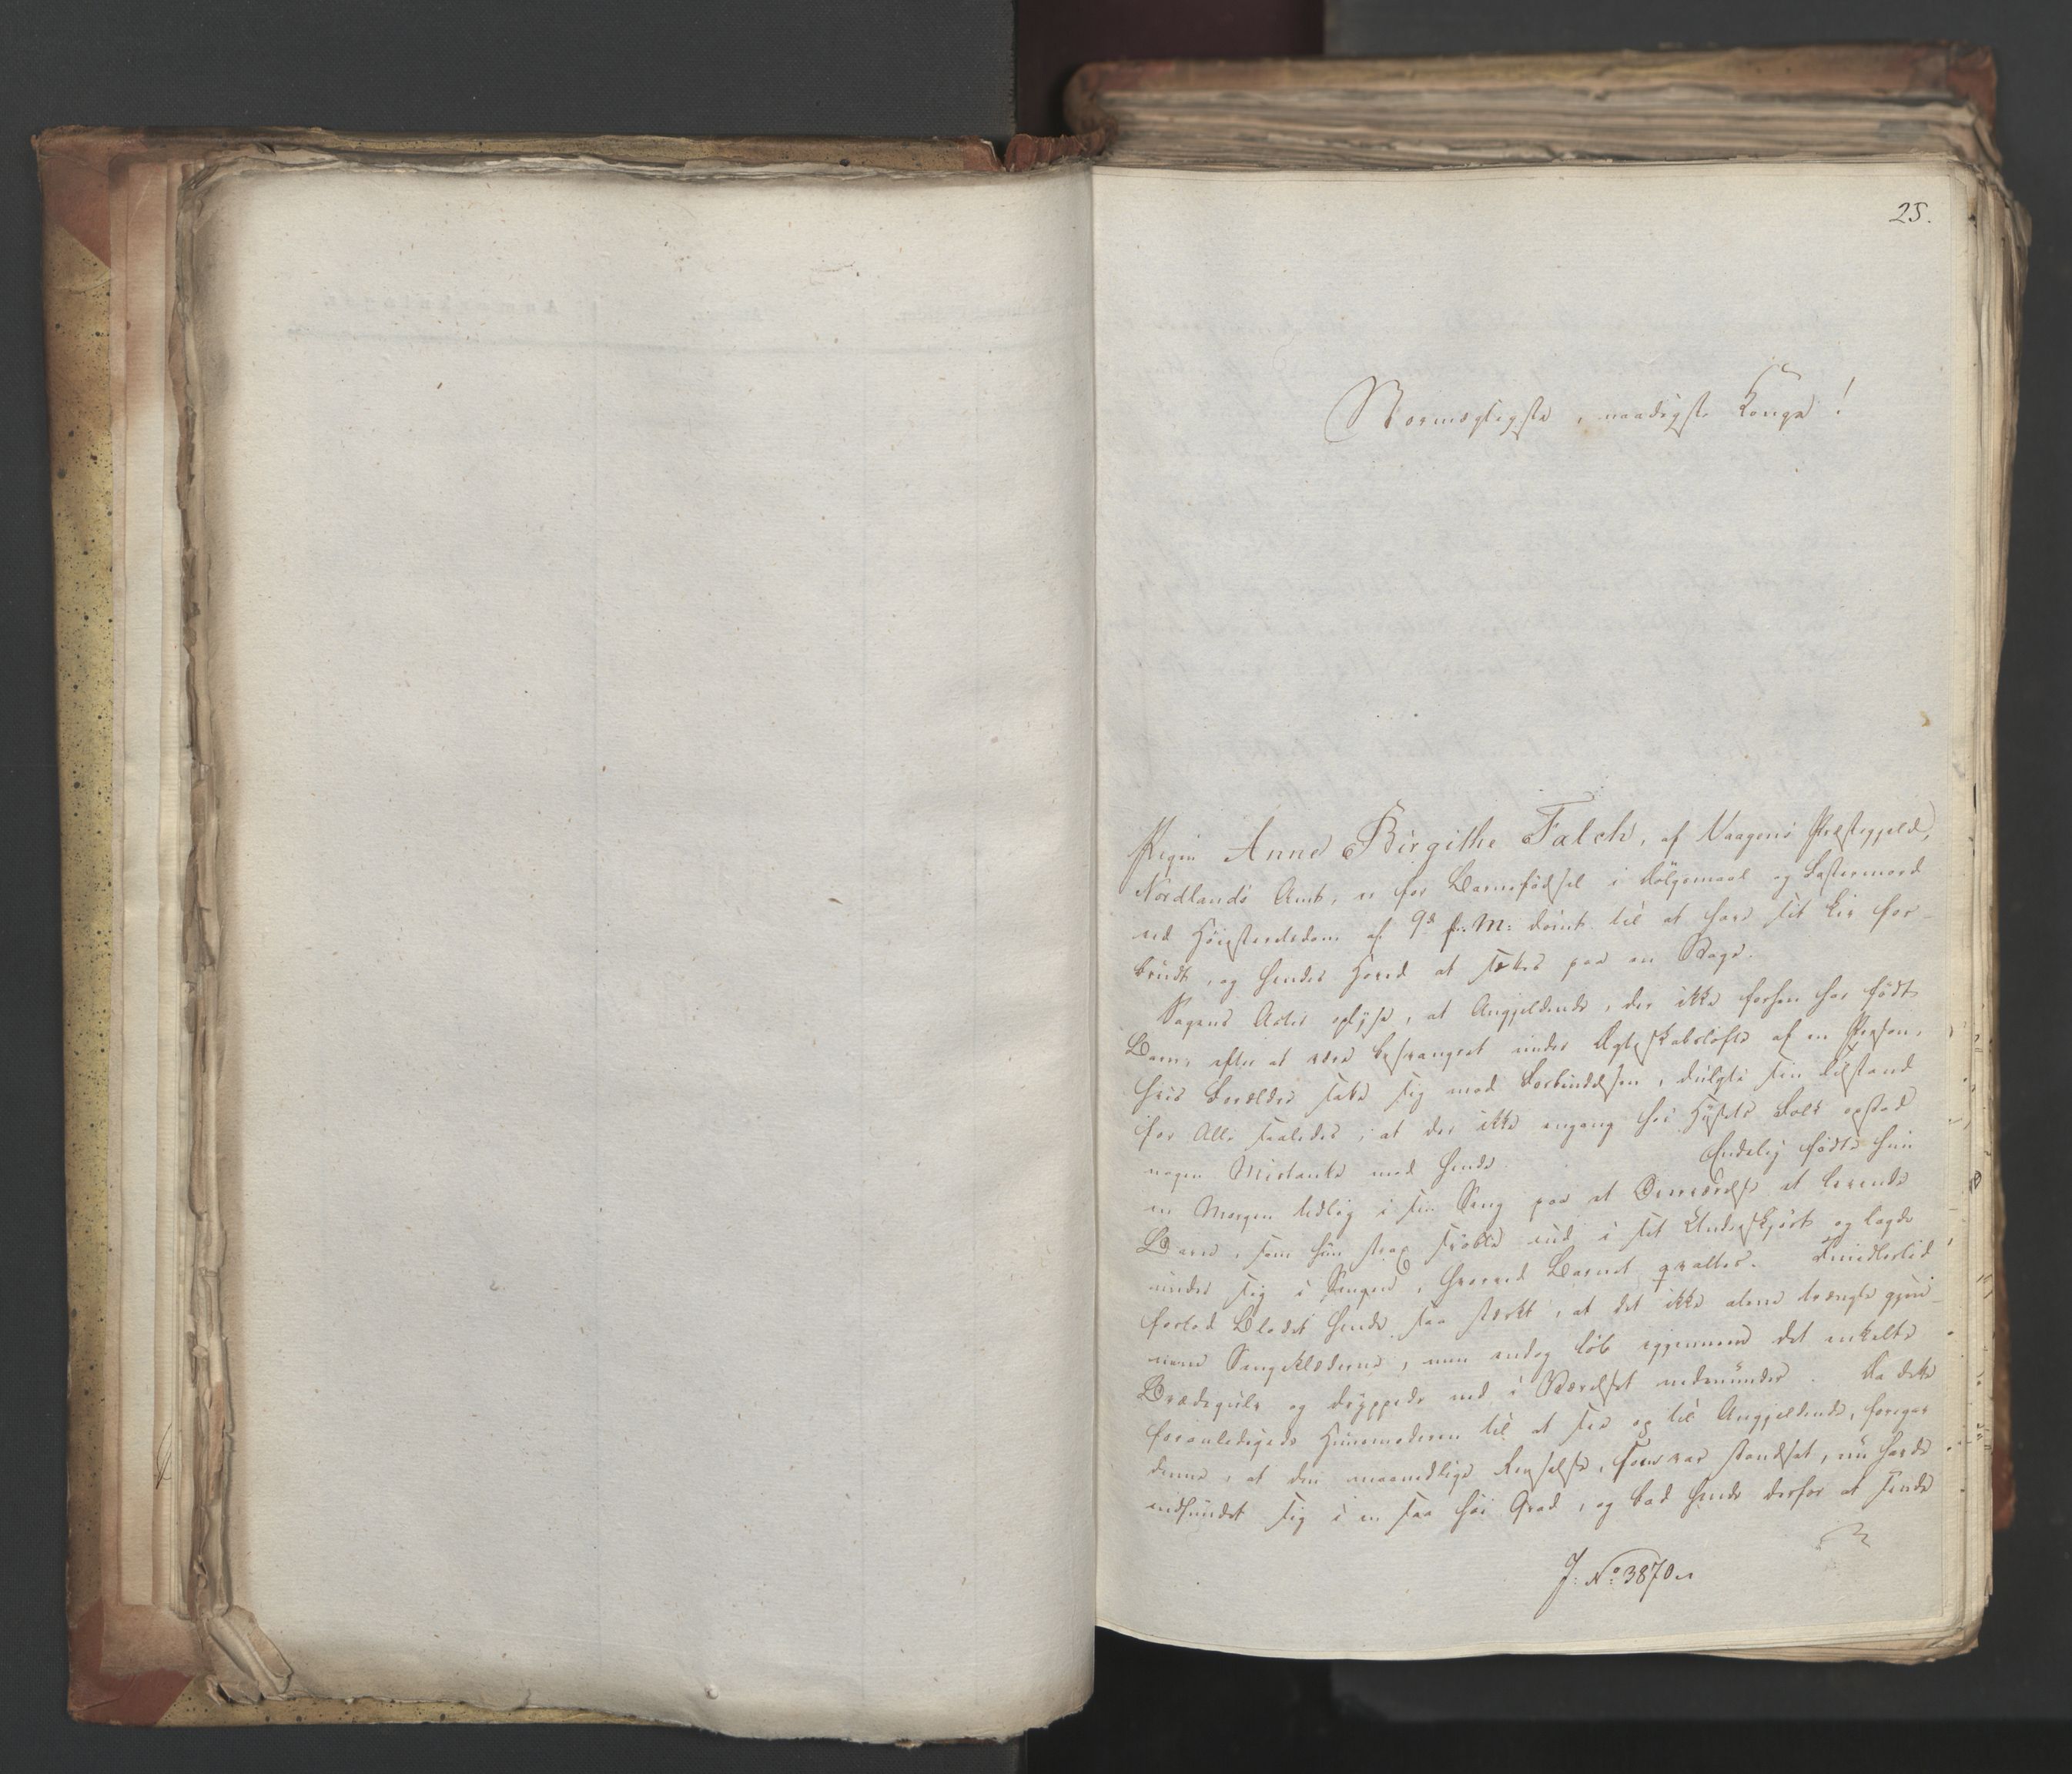 25.
Stormægtigste, naadigste Konge!
Pigen Anne Birgithe Falch, af Vaagens Præstegjeld,
Nordlands Amt, er for Barnefødsel i Dølgsmaal og Fostermord
ved Høiesteretsdom af 9de f. M: dømt til at have sit Liv for-
brudt, og hendes Hoved at sættes paa en Stage.
Sagens Acter oplyse, at Angjeldende, der ikke forhen har født
Barn, efter at være besvangret under Ægteskabsløfte af en Person,
hvis Forældre satte sig mod Forbindelsen, dulgte sin Tilstand
for Alle saaledes, at der ikke engang hos Husets Folk opstod
nogen Mistanke mod hende. Endelig fødte hun
en Morgen tidlig i sin Seng paa et Qvistværelse et levende
Barn, som hun strax svøbte ind i sit Underskjørt og lagde
under sig i Sengen, hvorved Barnet qvaltes. Imidlertid
forlod Blodet hende saa stærkt, at det ikke alene trængte gjen-
nem Sengeklæderne, men endog løb igjennem det enkelte
Brædegulv og dryppede ned i Værelset nedenunder. Da dette
foranledigede Huusmoderen til at see op til Angjeldende, foregav
denne, at den maanedlige Renselse, som var standset, nu havde
indfundet sig i en saa høi Grad, og bad hende derfor at sende
J: No 3870